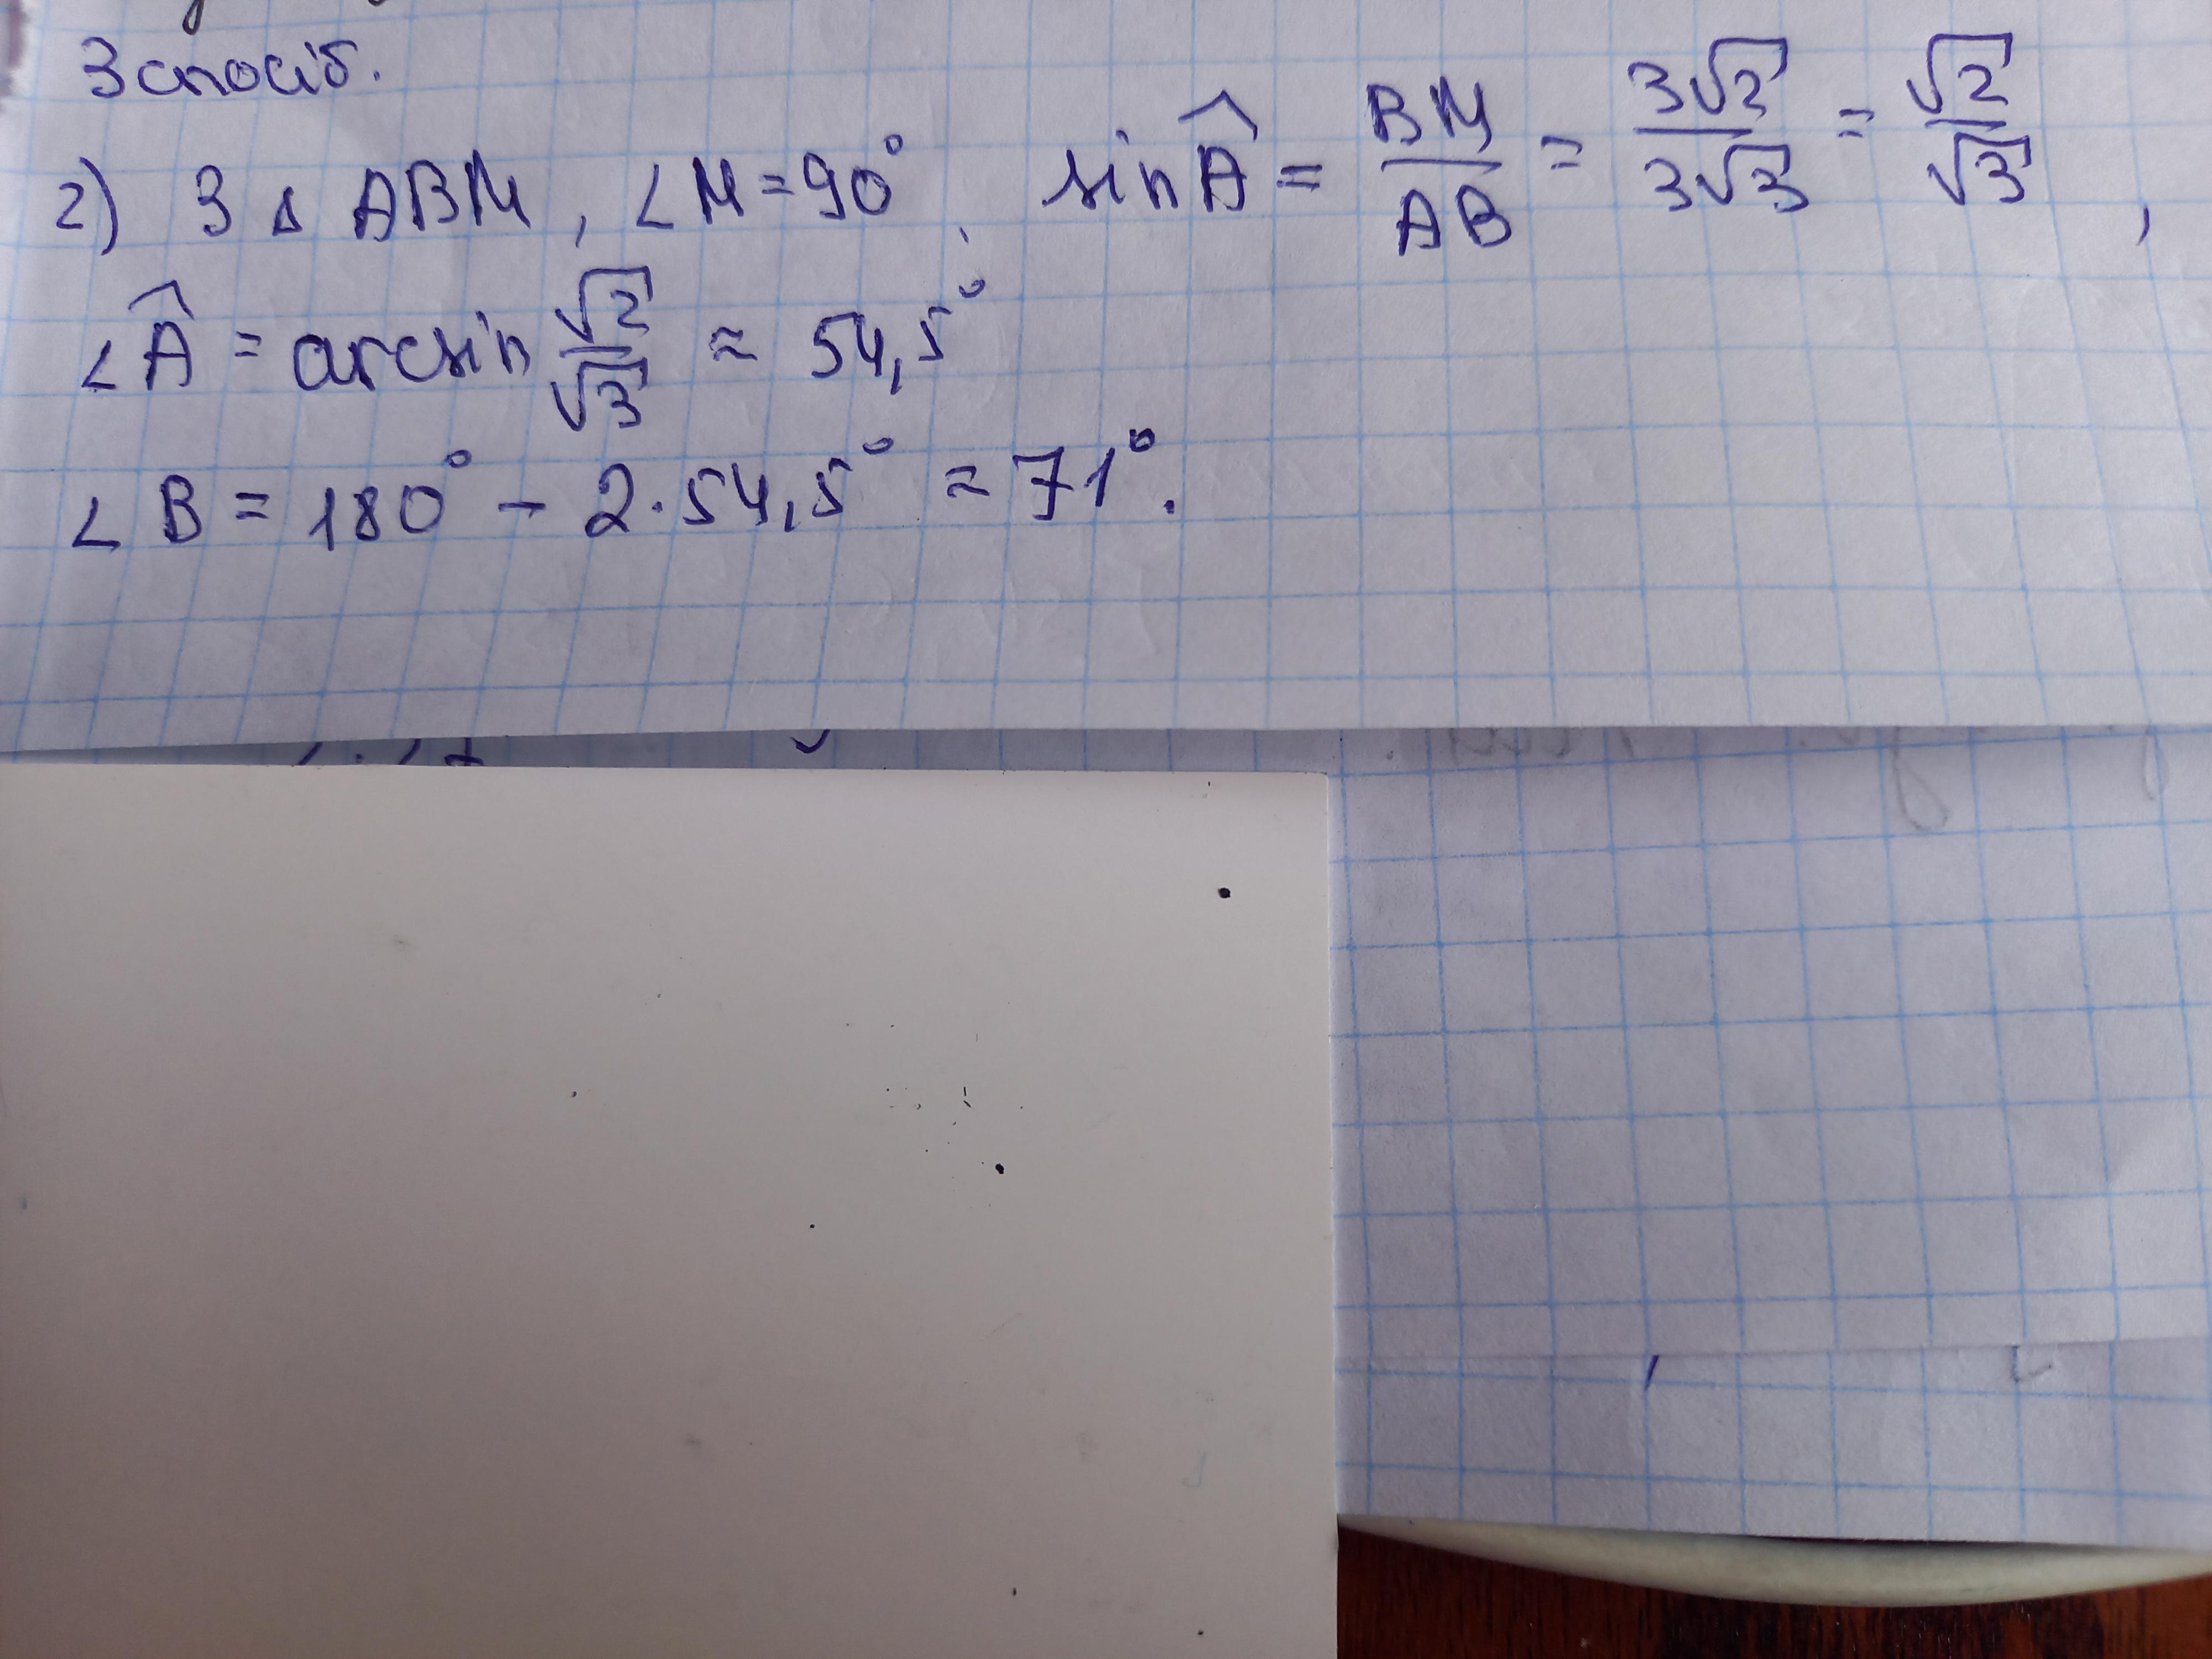 3 спосіб.
2) З Δ ABM, ∠M=90°, sin Â = BM/AB = 3√2/3√3 = √2/√3,
∠Â = arcsin √2/√3 ≈ 54,5°
∠B = 180° - 2·54,5° = 71°.